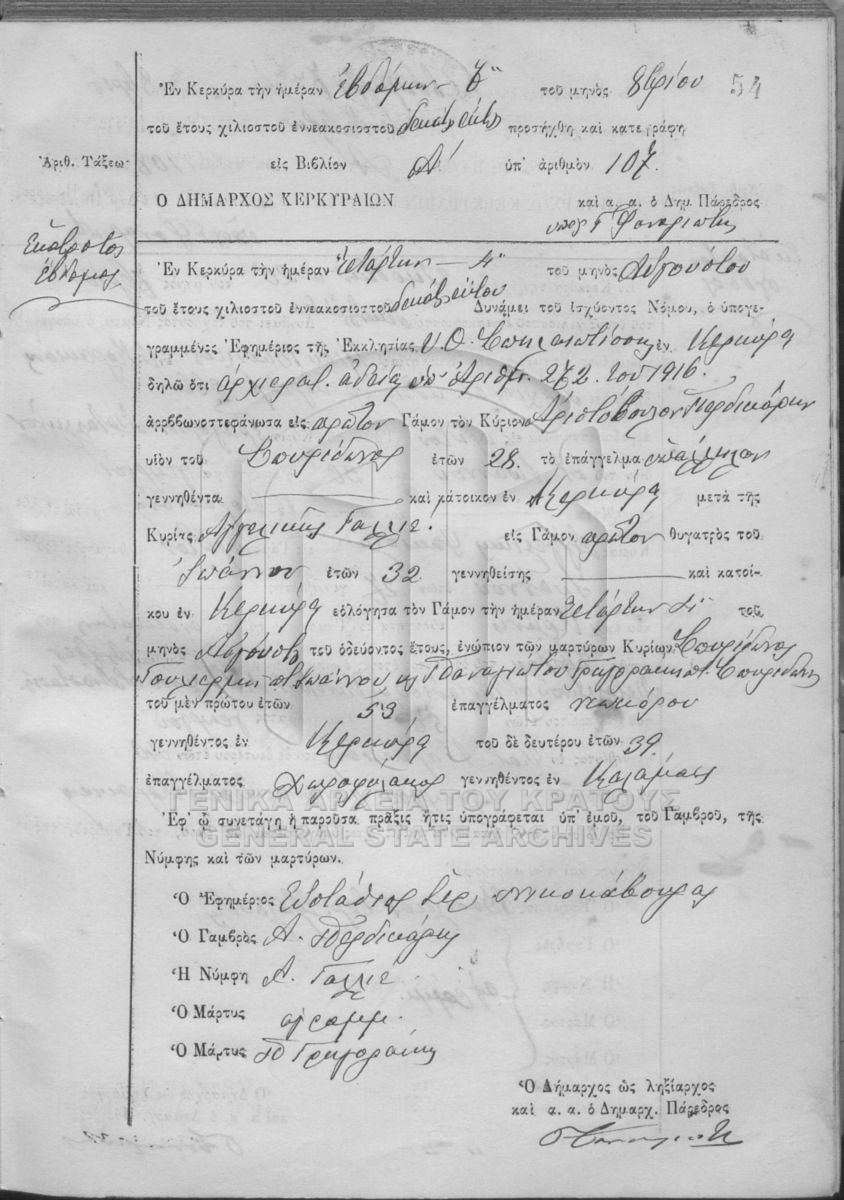 54
Ἐν Κερκύρα τὴν ἡμέραν ἑβδόμην 7 τοῦ μηνὸς 8βρίου
τοῦ ἔτους χιλιοστοῦ ἐννεακοσιοστοῦ δεκάτου ἕκτου προσήχθη καὶ κατεγράφη
Ἀριθ. Τάξεω; εἰς Βιβλίον Α΄ ὑπ᾽ ἀριθμὸν 107.
Ὁ ΔΗΜΑΡΧΟΣ ΚΕΡΚΥΡΑΙΩΝ καὶ α. α. ὁ Δημ. Πάρεδρος
Ἑκατοστὸς
ἕβδομος
Ἐν Κερκύρα τὴν ἡμέραν τετάρτην 4 τοῦ μηνὸς Αὐγούστου
τοῦ ἔτους χιλιοστοῦ ἐννεακοσιοστοῦ δεκάτου ἕκτου Δυνάμει τοῦ ἰσχύοντος Νόμου, ὁ ὑπογε-
γραμμένος Ἐφημέριος τῆς Ἐκκλησίας Υ. Θ. Σπηλαιωτίσσης ἐν Κερκύρᾳ
δηλῶ ὅτι ἀρχιερατ. ἀδείᾳ ὑπ᾽ ἀριθμ. 272. του 1916.
ἀρρβθωνοστεφάνωσα εἰς πρῶτον Γάμον τὸν Κύριον Ἀριστόβουλον Περδικάρην
υἱὸν τοῦ Σπυρίδωνος ἐτῶν 28. τὸ ἐπάγγελμα ὑπάλληλον
γεννηθέντα καὶ κάτοικον ἐν Κερκύρᾳ μετὰ τῆς
Κυρίας Ἀγγελικῆς Γαλλιέ. εἰς Γάμον πρῶτον θυγατρὸς τοῦ
Ἰωάννου ἐτῶν 32 γεννηθείσης καὶ κατοί-
κου ἐν Κερκύρᾳ εὐλόγησα τὸν Γάμον τὴν ἡμέραν τετάρτην 4 τοῦ
μηνὸς Αὐγούστ. τοῦ ὁδεύοντος ἔτους, ἐνώπιον τῶν μαρτύρων Κυρίων Σπυρίδωνος
Ἰωάννου κ Παναγιώτου Γρηγοράκη π. Σπυρίδωνος
τοῦ μὲν πρώτου ἐτῶν 53 ἐπαγγέλματος νεωκόρου
γεννηθέντος ἐν Κερκύρᾳ τοῦ δὲ δευτέρου ἐτῶν 39.
ἐπαγγέλματος χωροφύλακος γεννηθέντος ἐν Καλάμαις
ΓΕΝΙΚΑ ΑΡΧΕΙΑ ΤΟΥ ΚΡΑΤΟΥΣ
Ἐφ᾽ ᾧ συνετάγη ἡ παροῦσα πρᾶξις ἥτις ὑπογράφεται ὑπ᾽ ἐμοῦ, τοῦ Γαμβροῦ, τῆς
GENERAL STATE ARCHIVES
Νύμφης καὶ τῶν μαρτύρων.
Ὁ Ἐφημέριος Εὐστάθιος ἱερ.
Ὁ Γαμβρὸς Α. Περδικάρης
Ἡ Νύμφη Α. Γαλλιέ
Ὁ Μάρτυς ἀγράμμ.
Ὁ Μάρτυς Π Γρηγοράκης
Ὁ Δήμαρχος ὡς ληξίαρχος
καὶ α. α. ὁ Δημαρχ. Πάρεδρος